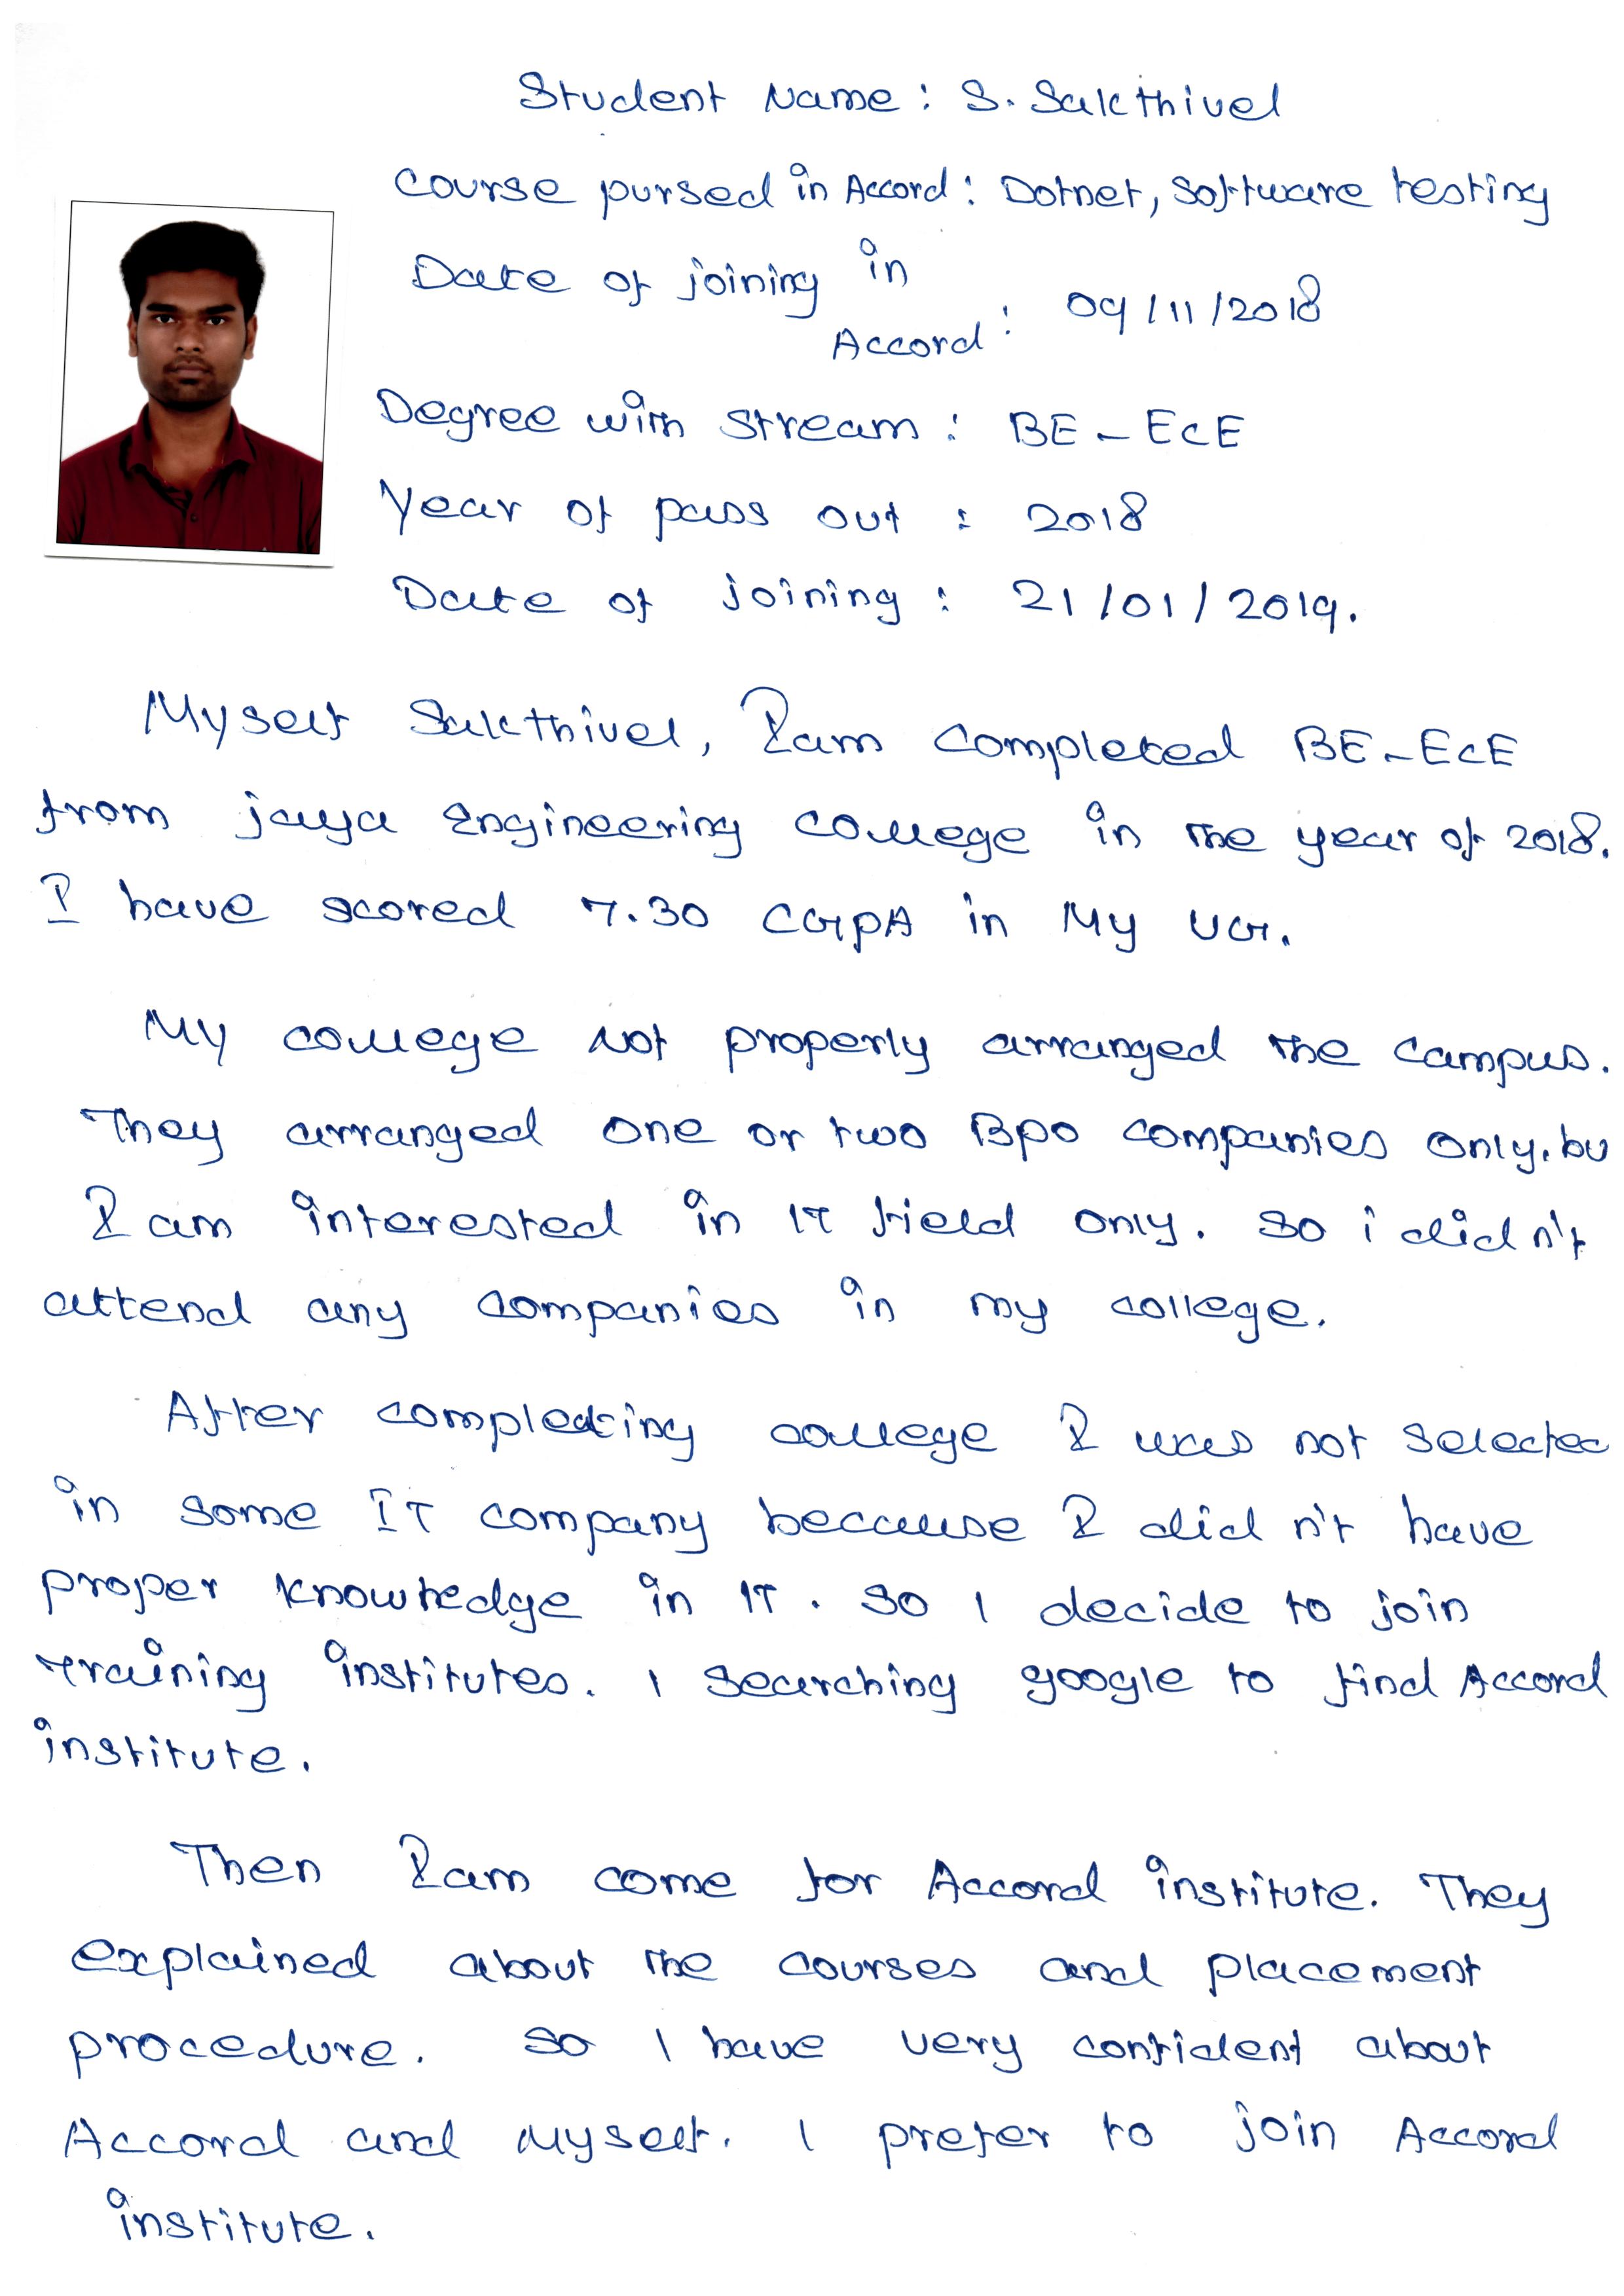 Student Name : S. Sakthivel
Course pursed in Accord : Dotnet, Software testing
Date of joining in
Accord : 09/11/2018
Degree with stream : BE - ECE
Year of pass out : 2018
Date of joining : 21/01/2019.
Myself Sakthivel, I am completed BE-ECE
from jaya Engineering college in the year of 2018.
I have scored 7.30 CGPA in My UG.
My college not properly arranged the campus.
They arranged one or two Bpo companies only. bu
I am interested in IT field only. so i did n't
attend any companies in my college.
After completing college I was not selected
in some IT company because I did n't have
proper knowledge in IT. so I decide to join
training institutes. I searching google to find Accord
institute.
Then I am come for Accord institute. They
explained about the courses and placement
procedure. so I have very confident about
Accord and Myself. I prefer to join Accord
institute.